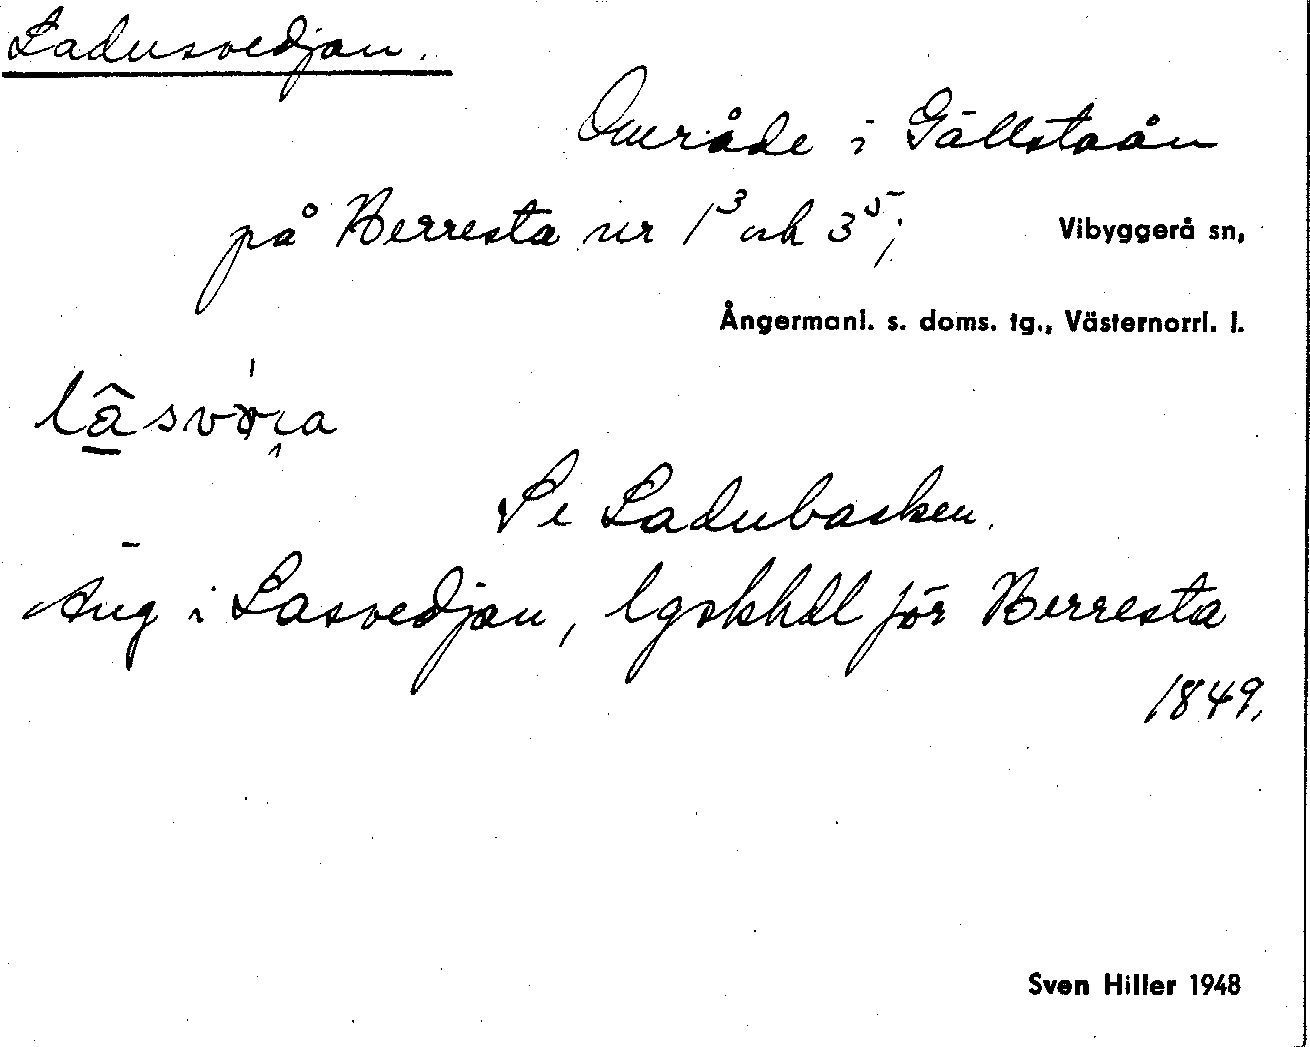 Ladusvedjan.
Område i Gällstaån
på Berresta nr 1³ och 3⁵; Vibyggerå sn,
Ångermanl. s. doms. tg., Västernorrl. l.
Se Ladubasken.
Äng i Lasvedjan, lgskhdl för Berresta
1849.
Sven Hiller 1948